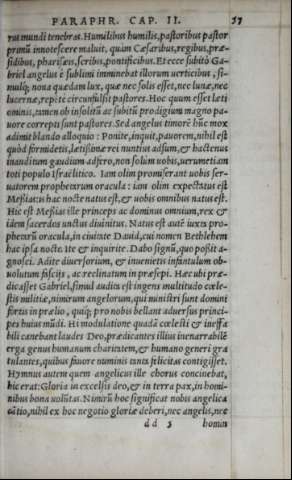 PARAPHR. CAP. II. 57
rus mundi tenebras. Humilibus humilis, pastoribus pastor
primũ innotescere maluit, quàm Cæsaribus, regibus, præ-
sidibus, pharisæis, scribis, pontificibus. Et ecce subitò Ga-
briel angelus è sublimi imminebat illorum uerticibus, si-
mulq; noua quædam lux, quæ nec solis esset, nec lunæ, nec
lucernæ, repẽte circũfulsit pastores. Hoc quum esset leti
ominis, tamen ob insolitũ ac subitũ prodigium magno pa-
uore correpti sunt pastores. Sed angelus timorẽ hũc mox
adimit blando alloquio: Ponite, inquit, pauorem, nihil est
quòd formidetis, lętißimæ rei nuntius adsum, & hactenus
inauditum gaudium adfero, non solum uobis, uerumetiam
toti populo Israëlitico. Iam olim promiserant uobis ser-
uatorem prophetarum oracula: iam olim expectatus est
Meßias: is hac nocte natus est, & uobis omnibus natus est.
Hic est Meßias ille princeps ac dominus omnium, rex &
idem sacerdos unctus diuinitus. Natus est autẽ iuxta pro-
phetarũ oracula, in ciuitate Dauid, cui nomen Bethlehem
hac ipsa nocte. Ite & inquirite. Dabo signũ, quo poßit a-
gnosci. Adite diuersorium, & inuenietis infantulum ob-
uolutum fascijs, ac reclinatum in præsepi. Hæc ubi præ-
dicasset Gabriel, simul auditus est ingens multitudo cœle-
stis militiæ, nimirum angelorum, qui ministri sunt domini
fortis in prælio, quiq; pro nobis bellant aduersus princi-
pes huius mũdi. Hi modulatione quadã cœlesti & ineffa
bili canebant laudes Deo, prædicantes illius inenarrabilẽ
erga genus humanum charitatem, & humano generi gra
tulantes, quibus fauore numinis tanta felicitas contigisset.
Hymnus autem quem angelicus ille chorus concinebat,
hic erat: Gloria in excelsis deo, & in terra pax, in homi-
nibus bona uolũtas. Nimirũ hoc significat nobis angelica
cãtio, nihil ex hoc negotio gloriæ deberi, nec angelis, nec
d d 3 homin